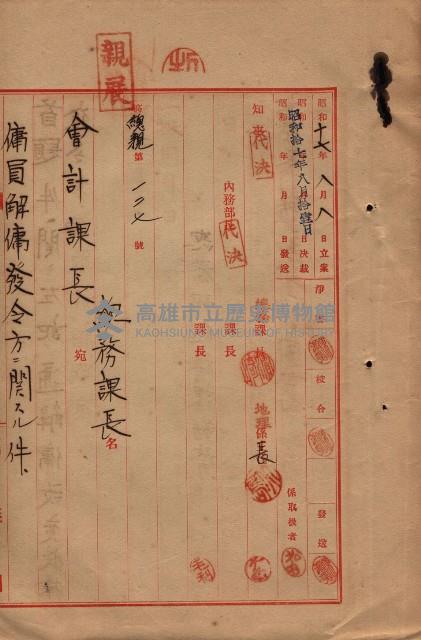 親展
昭和十七年八月八日立案
昭和 年 月 日決裁
昭和拾七年八月拾壹日
昭和 年 月 日發送
淨書
校合
發送
係取扱者
知事
代決
內務部長
代決
總務課長
地理係長
課長
課長
高總親第一六七號
總務課長名
會計課長宛
傭員解傭發令方ニ關スル件、
高雄市立歷史博物館
KAOHSIUNG MUSEUM OF HISTORY